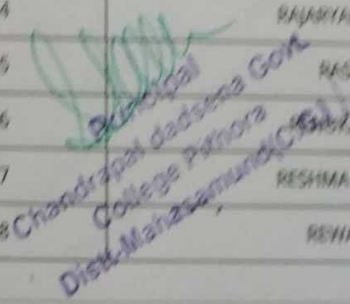 4 RAJARYA
5 RAS
6
7 RESHMA
8 REWA
Principal
Chandrapal dadsena Govt.
College Pithora
Distt-Mahasamund(C.G.)